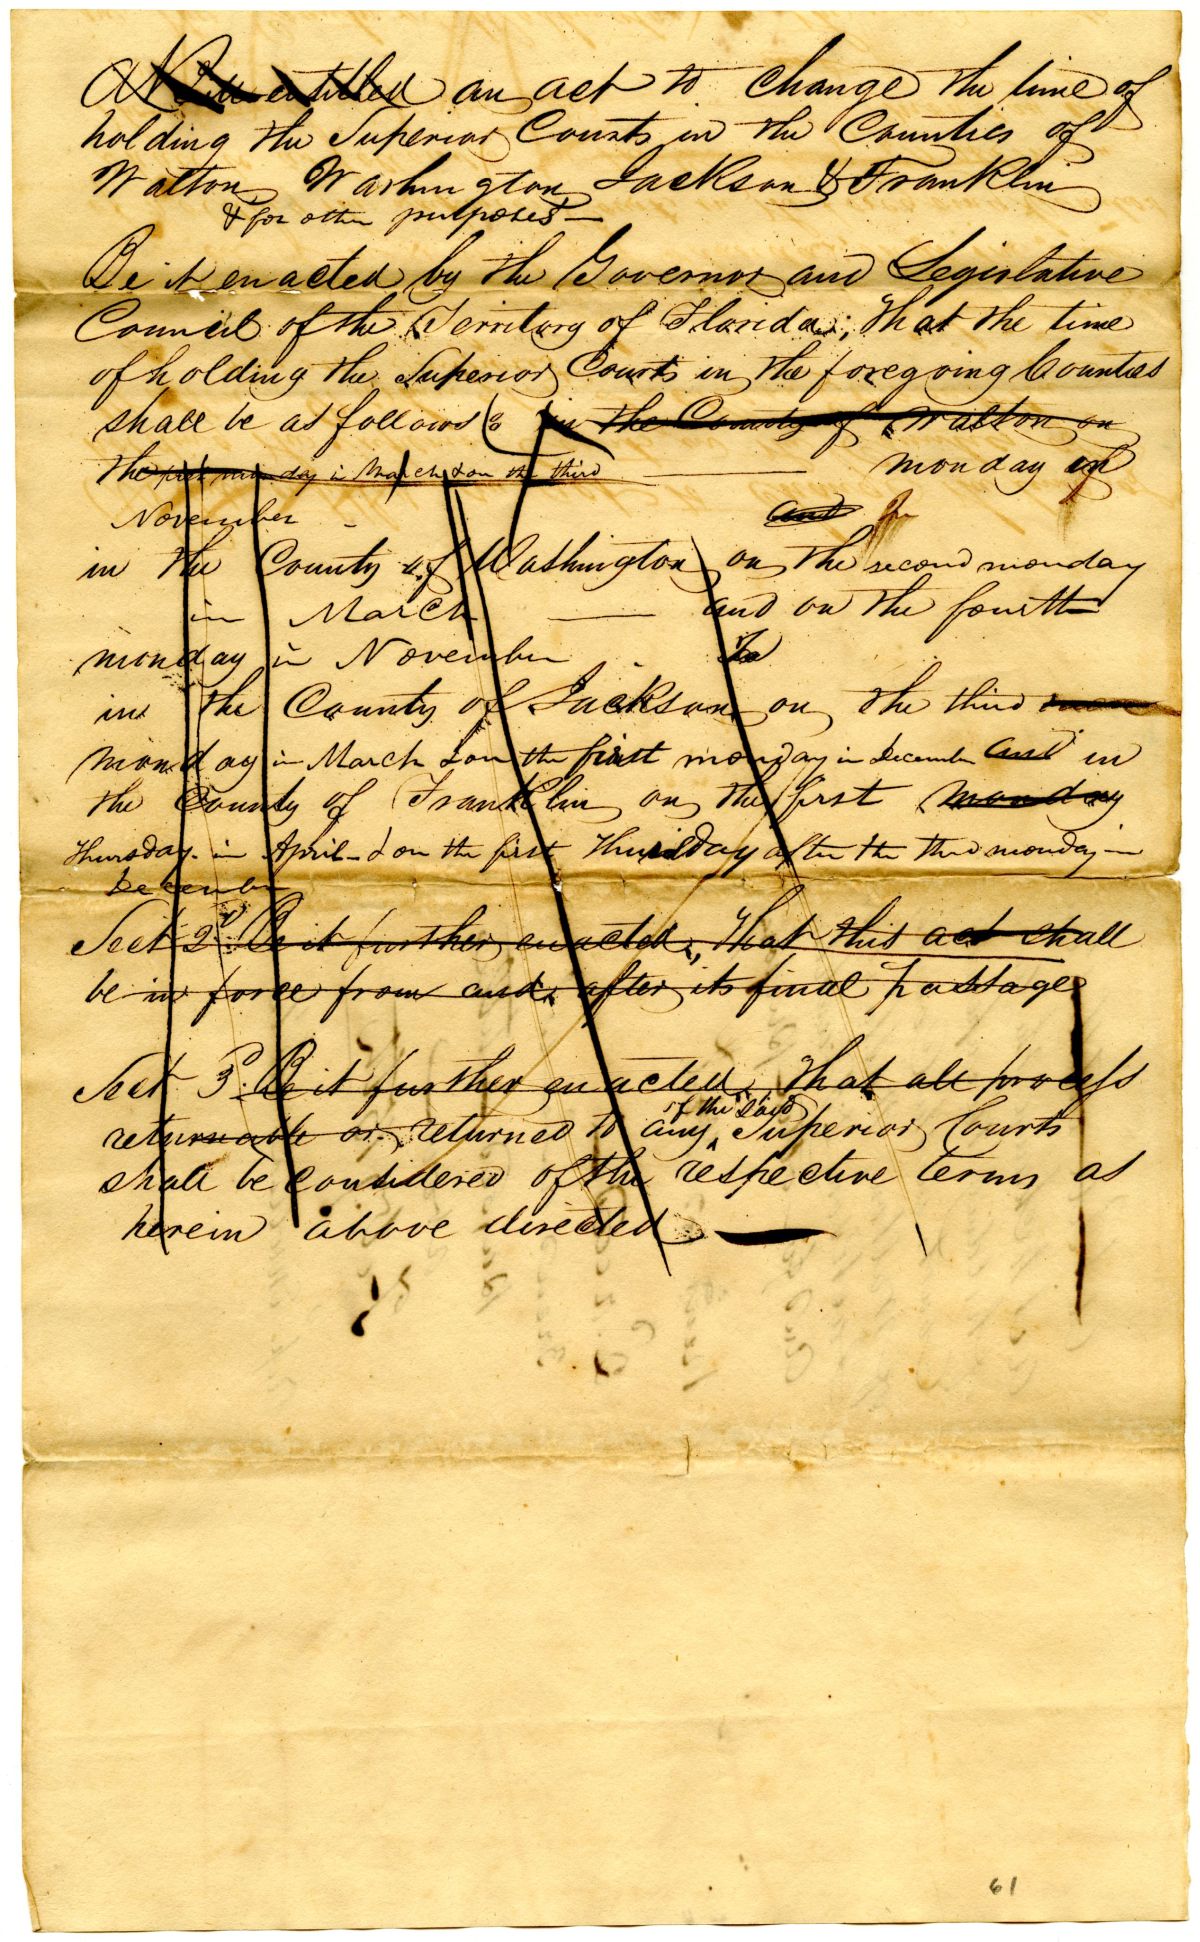 A Bill entitled an act to change the time of
holding the Superior Courts in the Counties of
Walton, Washington, Jackson & Franklin
& for other purposes—
Be it enacted by the Governor and Legislative
Council of the Territory of Florida; That the time
of holding the Superior Courts in the foregoing Counties
shall be as follows: in the County of Walton on
the first monday in March & on the third — monday of
November - and In
in the County of Washington on the second monday
in March — and on the fourth
monday in November - In
in the County of Jackson on the third mon
monday in March & on the first monday in December and in
the County of Franklin on the first monday
Thursday in April - & on the first Thursday after the third monday in
December
Sect 2d. Be it further enacted, That this act shall
be in force from and after its final passage
Sect 3d. Be it further enacted, That all process
of the said
returnable or returned to any Superior Courts
shall be considered of the respective terms as
herein above directed —
61